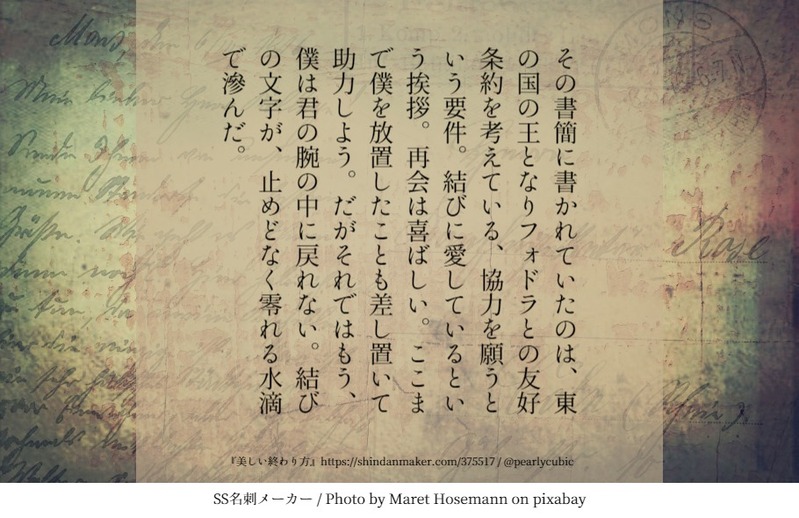 その書簡に書かれていたのは、東
の国の王となりフォドラとの友好
条約を考えている、協力を願うと
いう要件。結びに愛しているとい
う挨拶。再会は喜ばしい。ここま
で僕を放置したことも差し置いて
助力しよう。だがそれではもう、
僕は君の腕の中に戻れない。結び
の文字が、止めどなく零れる水滴
で滲んだ。
『美しい終わり方』https://shindanmaker.com/375517 / @pearlycubic
SS名刺メーカー / Photo by Maret Hosemann on pixabay